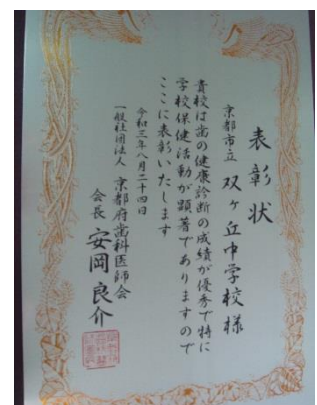 表彰状
京都市立 双ヶ丘中学校様
貴校は歯の健康診断の成績が優秀で特に
学校保健活動が顕著でありますので
ここに表彰いたします
令和三年八月二十四日
一般社団法人 京都府歯科医師会
会長 安岡良介